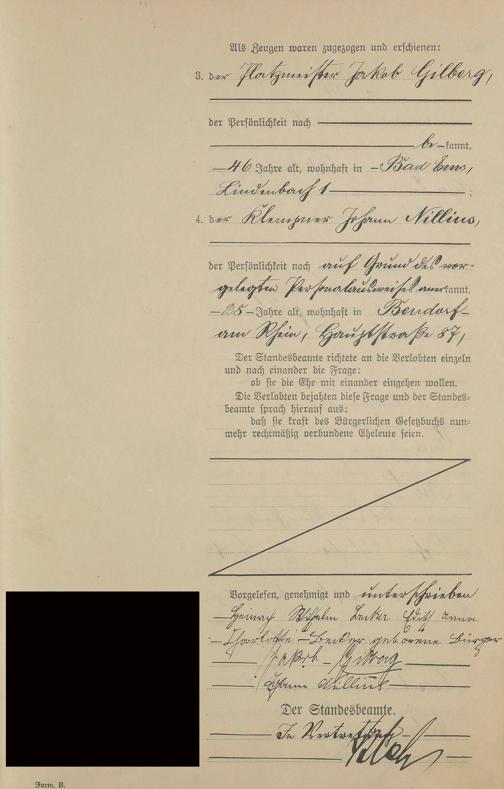 Als Zeugen waren zugezogen und erschienen:
3. der Platzmeister Jakob Gilberg,
der Persönlichkeit nach
be kannt,
46 Jahre alt, wohnhaft in Bad Ems,
Lindenbach 1
4. der Klempner Johann Nillius,
der Persönlichkeit nach auf Grund des vor-
gelegten Personalausweises anerkannt,
28 Jahre alt, wohnhaft in Bendorf
am Rhein, Hauptstraße 87,
Der Standesbeamte richtete an die Verlobten einzeln
und nach einander die Frage:
ob sie die Ehe mit einander eingehen wollen.
Die Verlobten bejahten diese Frage und der Standes-
beamte sprach hierauf aus:
daß sie kraft des Bürgerlichen Gesetzbuchs nun-
mehr rechtmäßig verbundene Eheleute seien.
Vorgelesen, genehmigt und unterschrieben
Wilhelm Becker Edith Anna
Charlotte Becker geborene Bürger
Jakob Gilberg
Johann Nillius
Der Standesbeamte.
In Vertretung
Form. B.